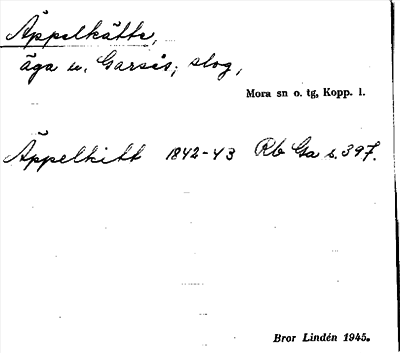 Äppelkätte,
äga u. Garsås; slog,
Mora sn o. tg, Kopp. l.
Äppelkitt 1842-43 Rb Ga s. 397.
Bror Lindén 1945.